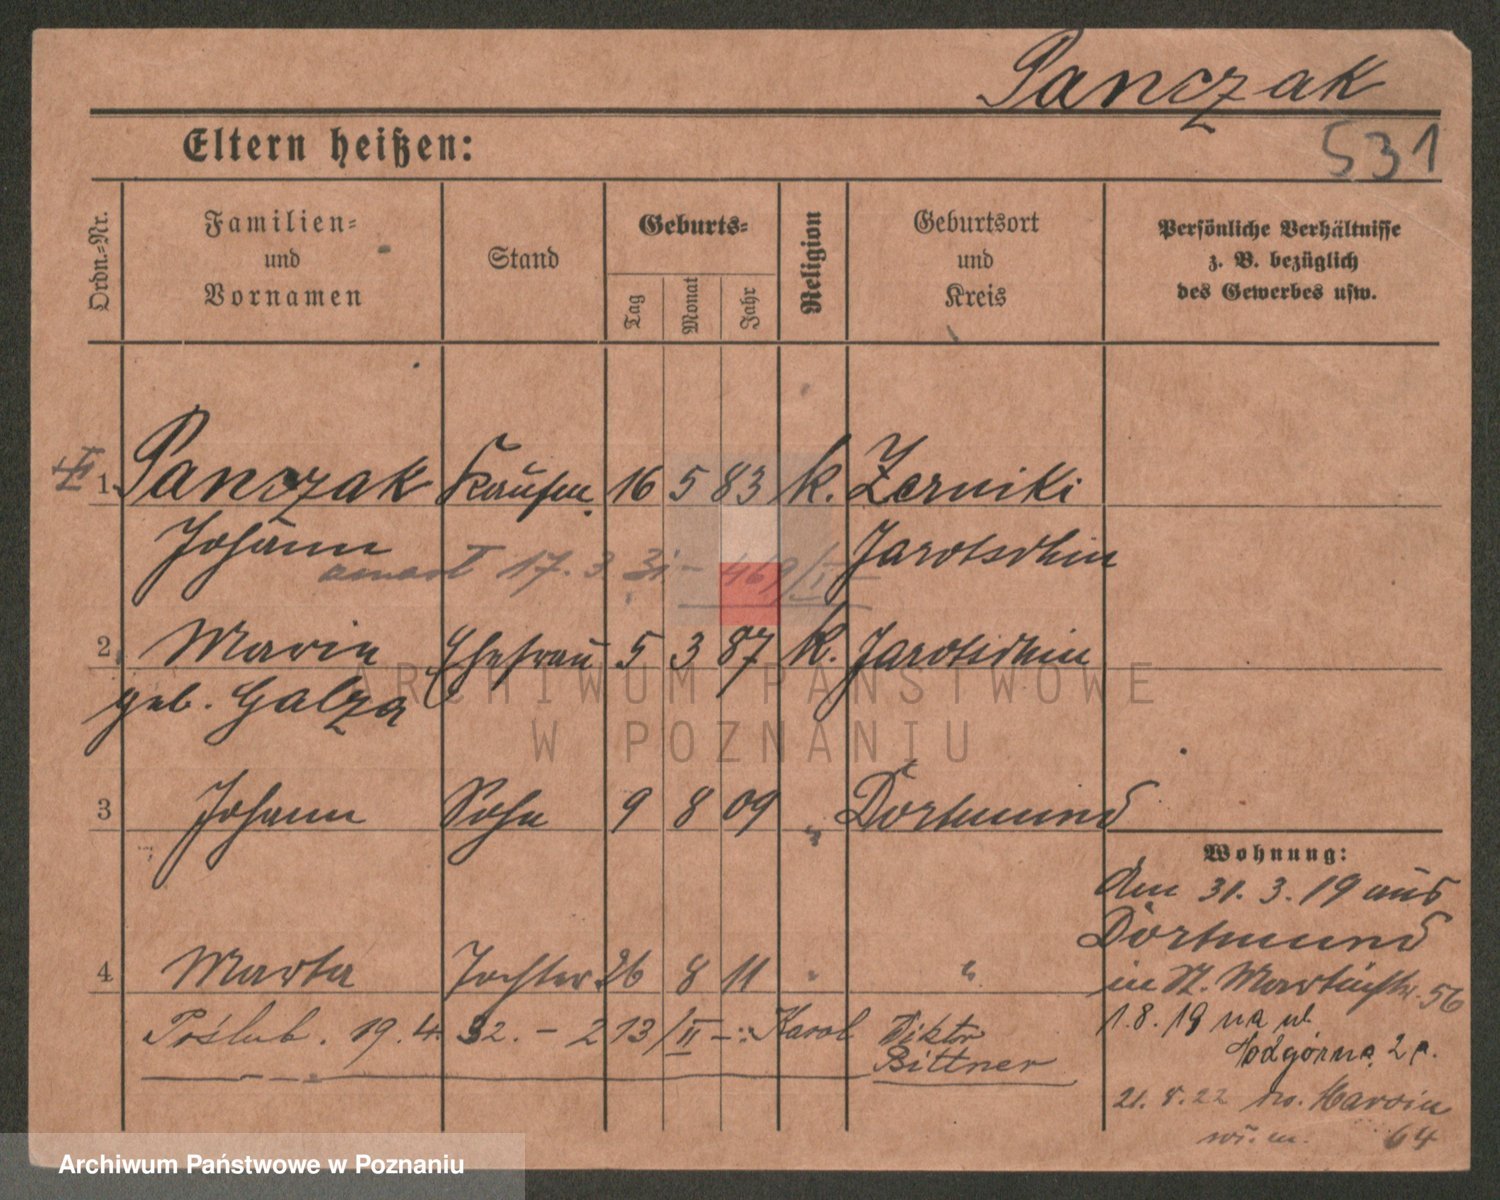 Panczak
531
Eltern heißen:
Ordn.=Nr.
Familien=
und
Vornamen
Stand
Geburts=
Tag
Monat
Jahr
Religion
Geburtsort
und
Kreis
Persönliche Verhältnisse
z. B. bezüglich
des Gewerbes usw.
1 Panczak Kaufm. 16 5 83 k. Zerniki
Johann Jarotschin
17. 3. 31 - 469/II
2 Marie Ehefrau 5 3 87 k. Jarotschin
geb. Galza
3 Johann Sohn 9 8 09 " Dortmund
Wohnung:
den 31. 3. 19 aus
Dortmund
in St. Martinstr. 56
4 Marta Tochter 26 8 11 " "
1.8.19 na ul.
Poślub. 19.4.32. - 213/II - Karol Viktor
Bittner
Podgórna 2a.
21.8.22 Marcin
64
ARCHIWUM PAŃSTWOWE
W POZNANIU
Archiwum Państwowe w Poznaniu